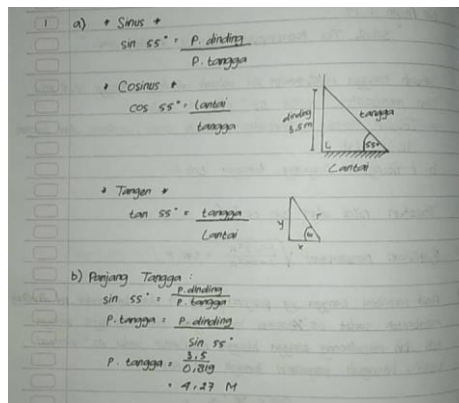 1 a) * Sinus *
sin 55° = P. dinding
P. tangga
* Cosinus *
cos 55° = Lantai
tangga
dinding
3,5 m
tangga
55°
Lantai
* Tangen *
tan 55° = tangga
Lantai
y
r
x
b) Panjang Tangga :
sin 55° = P. dinding
P. tangga
P. tangga = P. dinding
sin 55°
P. tangga = 3,5
0,819
= 4,27 M